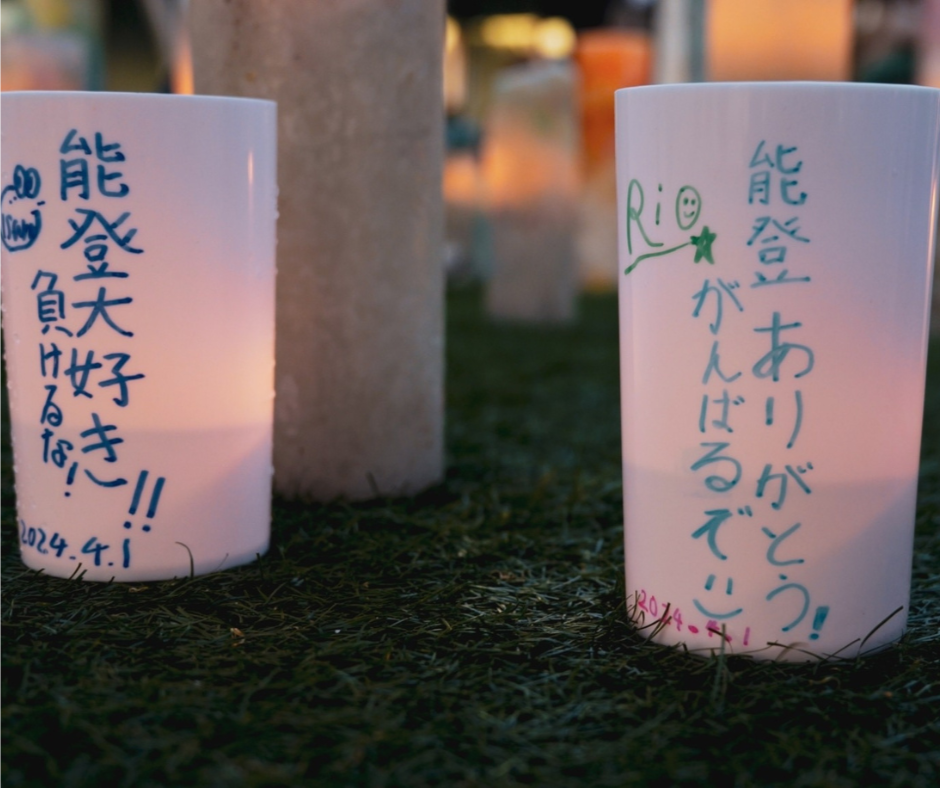 能登大好き!!
負けるな!
2024.4.1
能登ありがとう!
がんばるぞ
Rio
2024.4.1